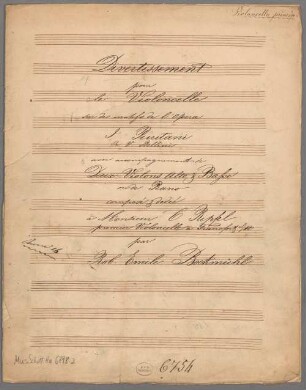 Violoncello principale
Divertissement
pour
le Violoncelle
sur des motifs de l'Opera
I Puritani
de V. Bellini
avec accompagnement de
Deux Violons Alto & Basse
ou de Piano
composé & dédié
à Monsieur C. Rippl
premier Violoncelle
par
Rob. Emile Bockmühl
6754